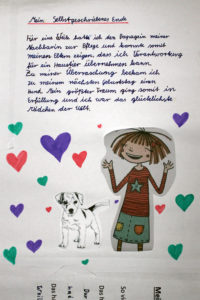 Mein Selbstgeschriebenes Ende
Für eine Weile hatte ich den Papagein meiner
Nachbarin zur Pflege und konnte somit
meinen Eltern zeigen, dass ich Verantwortung
für ein Haustier übernehmen kann.
Zu meiner Überraschung bekam ich
zu meinem nächsten Geburtstag einen
Hund. Mein größter Traum ging somit in
Erfüllung und ich war das glücklichste
Mädchen der Welt.